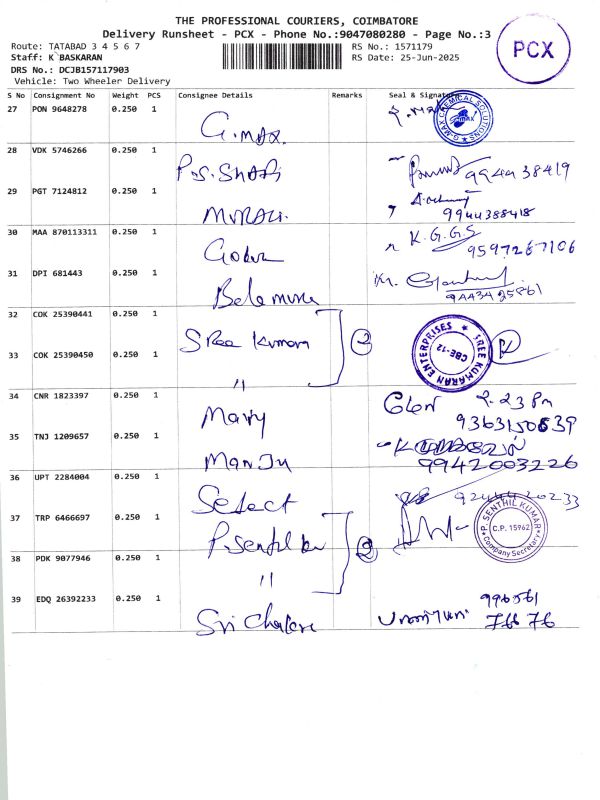 THE PROFESSIONAL COURIERS, COIMBATORE
Delivery Runsheet - PCX - Phone No.:9047080280 - Page No.:3
Route: TATABAD 3 4 5 6 7
RS No.: 1571179
Staff: K BASKARAN
RS Date: 25-Jun-2025
DRS No.: DCJB157117903
Vehicle: Two Wheeler Delivery
PCX
S No Consignment No Weight PCS Consignee Details Remarks Seal & Signature
27 PON 9648278 0.250 1 G.max.
G-MAX CHEMICAL SOLUTIONS
28 VDK 5746266 0.250 1 P.S. 9944438419
29 PGT 7124812 0.250 1 MURALI. 9944388418
30 MAA 870113311 0.250 1 K.G.G.S 9597267106
31 DPI 681443 0.250 1
32 COK 25390441 0.250 1 Sree Kumaran 2
SREE KUMARAN ENTERPRISES CBE-12
33 COK 25390450 0.250 1 "
34 CNR 1823397 0.250 1 Mary 2.23 Pm
35 TNJ 1209657 0.250 1 Manju 99942003226
36 UPT 2284004 0.250 1 Select
37 TRP 6466697 0.250 1 P. Senthil 2
P. SENTHIL KUMAR C.P. 15962 Company Secretary
38 PDK 9077946 0.250 1 "
39 EDQ 26392233 0.250 1 Sri 996561
766 76